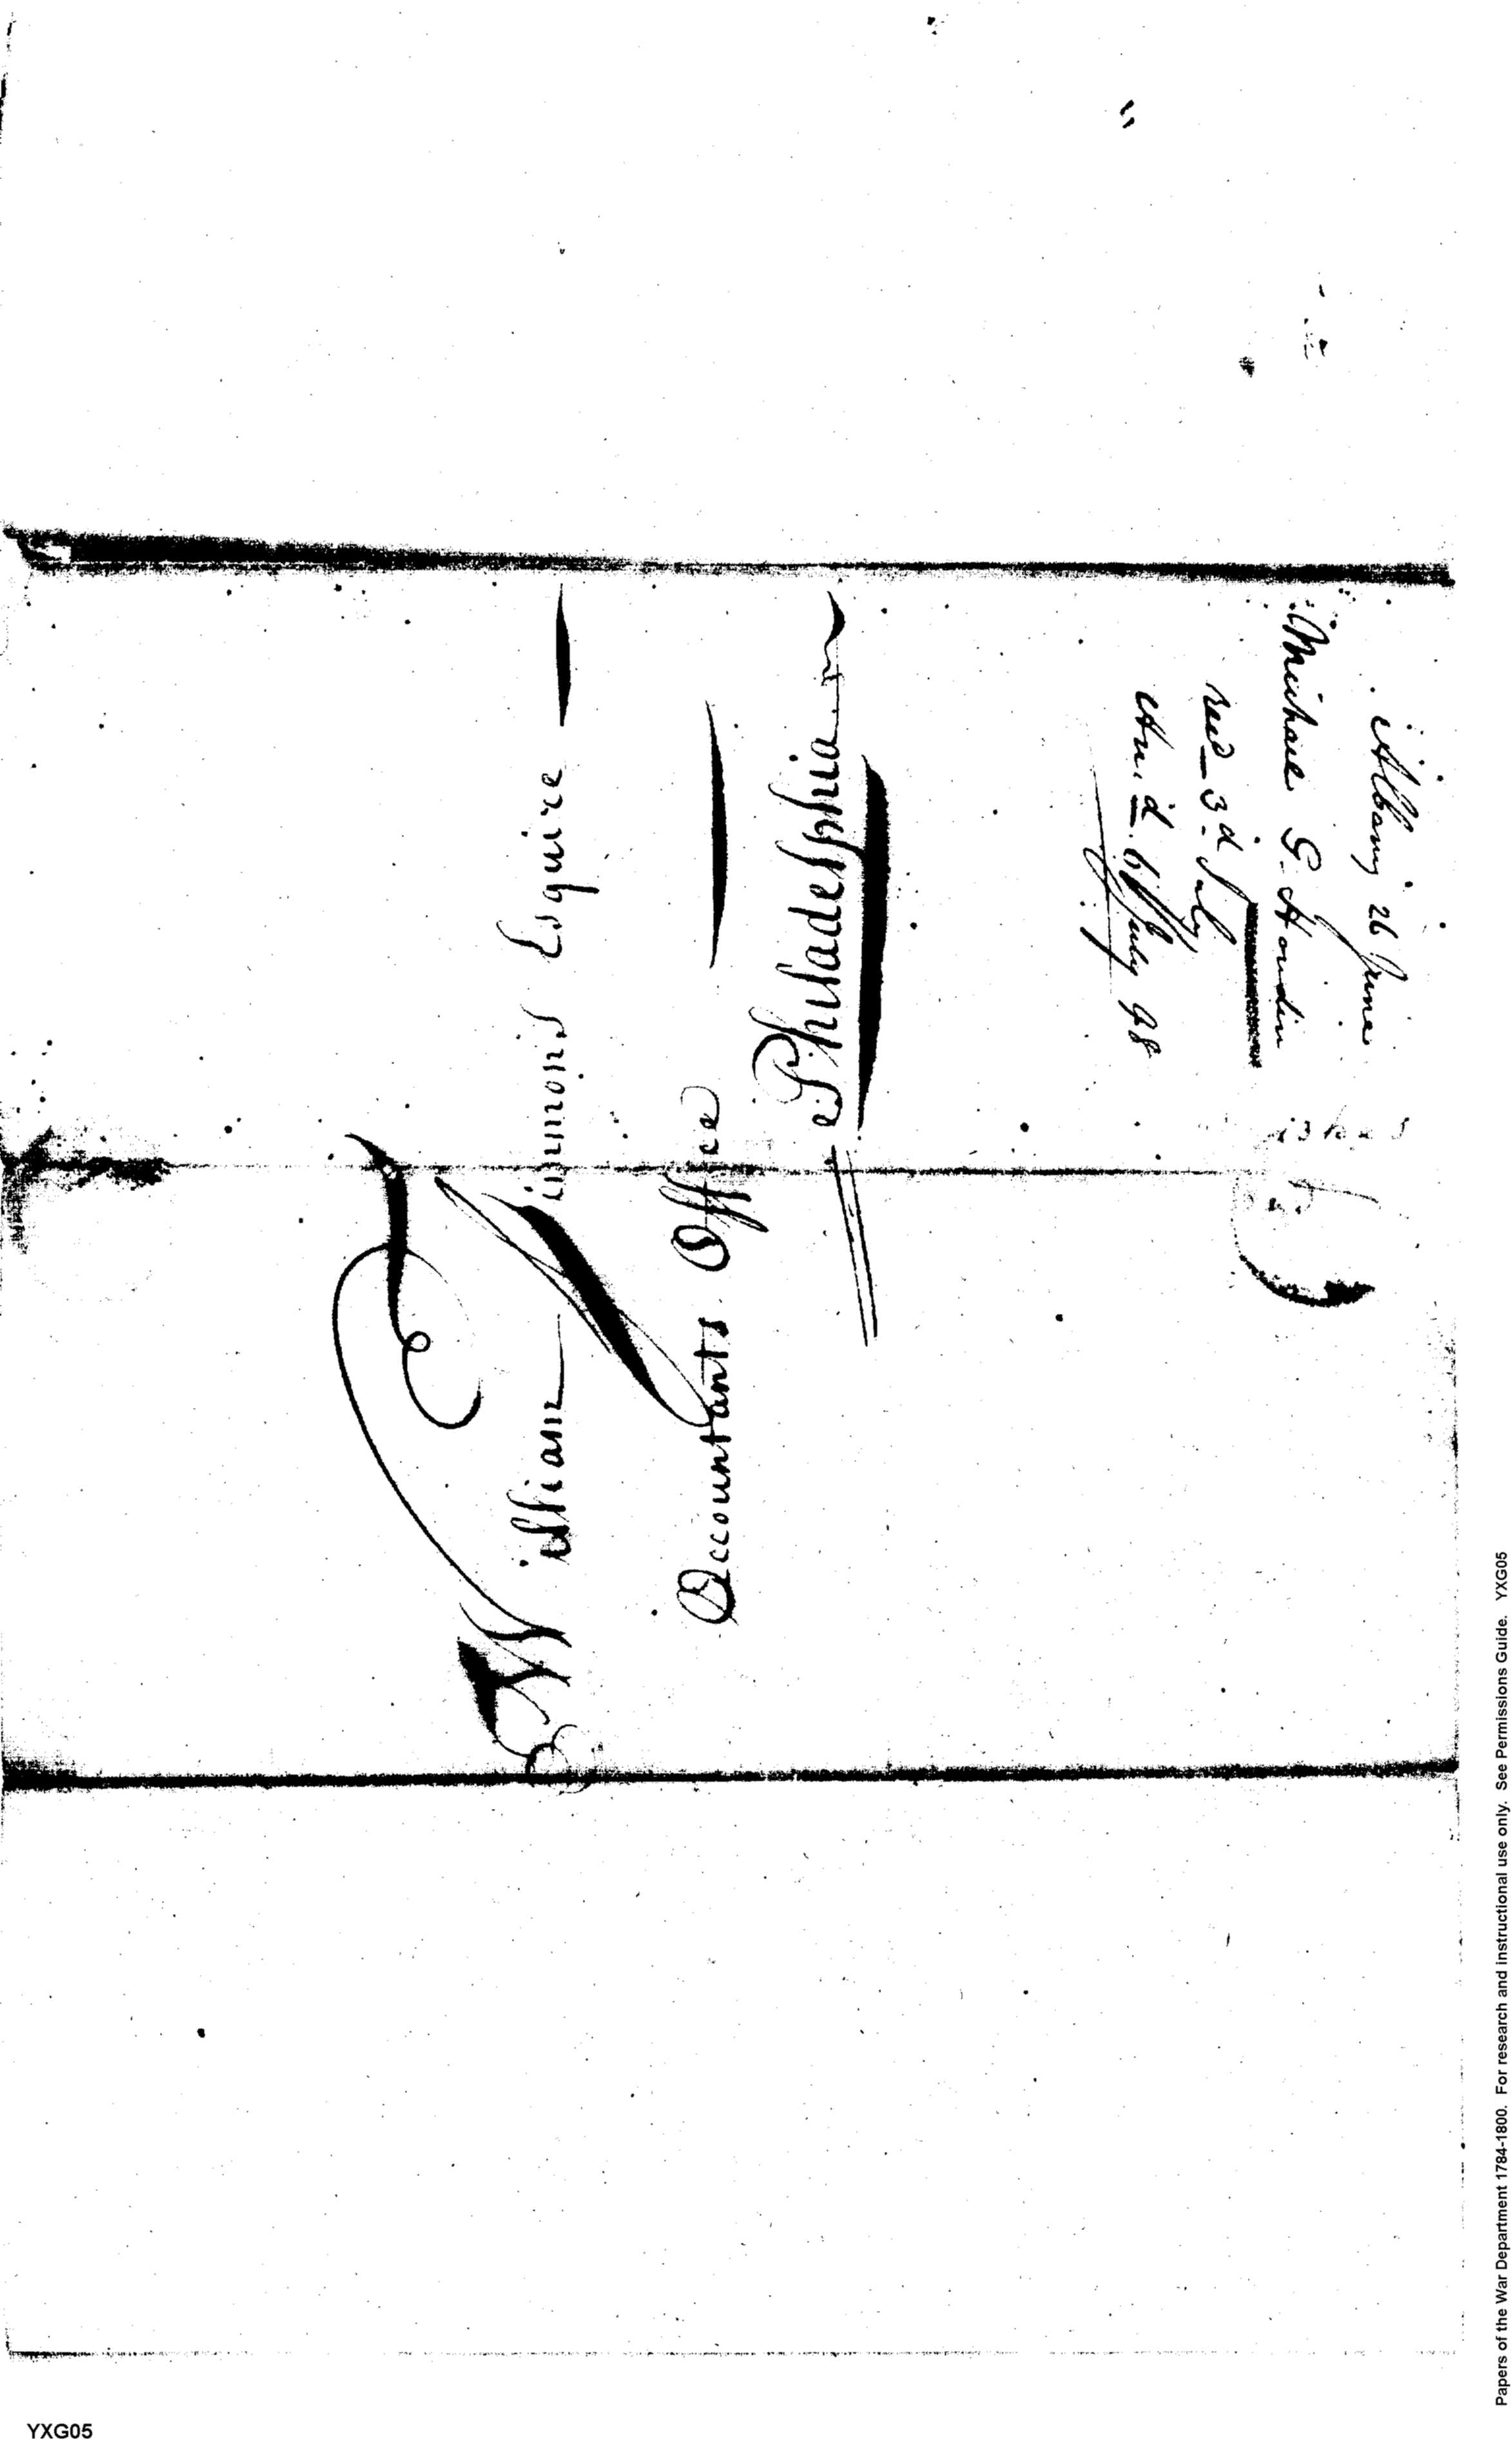 William Simmons Esquire
Accountants Office
Philadelphia
Albany 26 June
Michael G. Houdin
recd 3d July
An.d. 6 July 98
Papers of the War Department 1784-1800. For research and instructional use only. See Permissions Guide. YXG05
YXG05